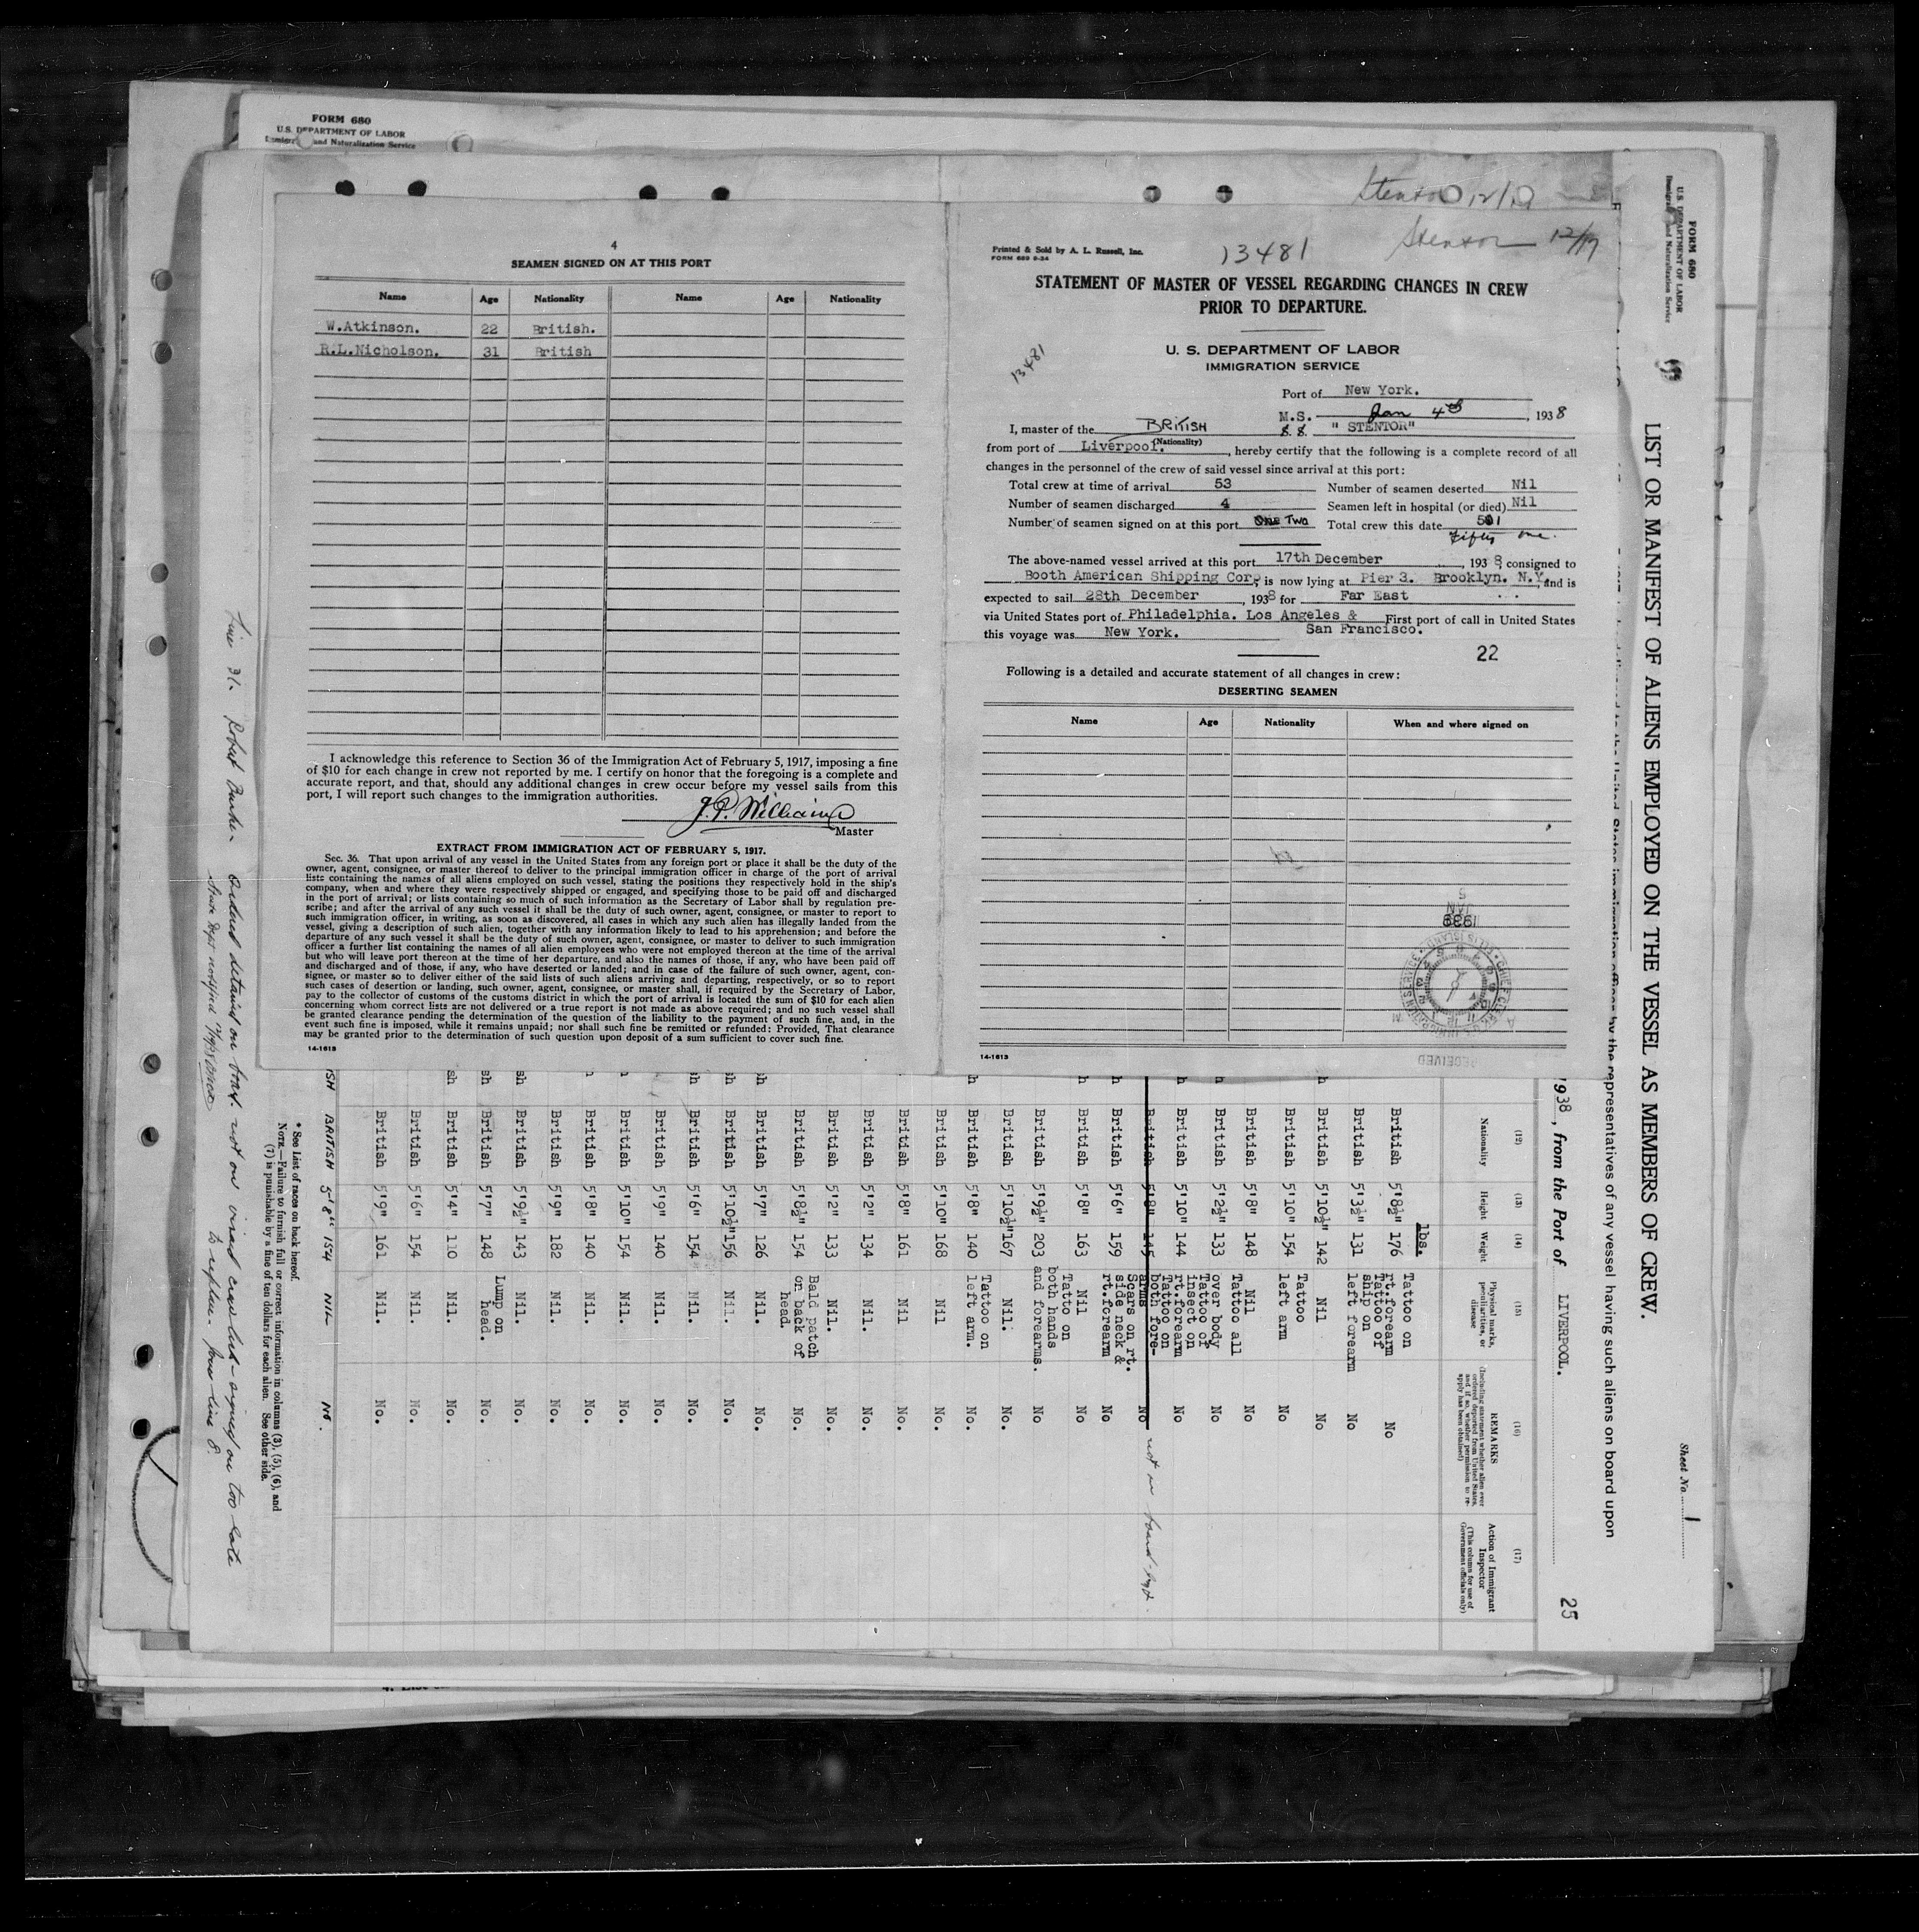 FORM 680
U.S. DEPARTMENT OF LABOR
and Naturalization Service
4
SEAMEN SIGNED ON AT THIS PORT
Name Age Nationality Name Age Nationality
W.Atkinson. 22 British.
R.L.Nicholson. 31 British
I acknowledge this reference to Section 36 of the Immigration Act of February 5, 1917, imposing a fine
of $10 for each change in crew not reported by me. I certify on honor that the foregoing is a complete and
accurate report, and that, should any additional changes in crew occur before my vessel sails from this
port, I will report such changes to the immigration authorities.
J.P. Williams
Master
EXTRACT FROM IMMIGRATION ACT OF FEBRUARY 5, 1917.
Sec. 36. That upon arrival of any vessel in the United States from any foreign port or place it shall be the duty of the
owner, agent, consignee, or master thereof to deliver to the principal immigration officer in charge of the port of arrival
lists containing the names of all aliens employed on such vessel, stating the positions they respectively hold in the ship's
company, when and where they were respectively shipped or engaged, and specifying those to be paid off and discharged
in the port of arrival; or lists containing so much of such information as the Secretary of Labor shall by regulation pre-
scribe; and after the arrival of any such vessel it shall be the duty of such owner, agent, consignee, or master to report to
such immigration officer, in writing, as soon as discovered, all cases in which any such alien has illegally landed from the
vessel, giving a description of such alien, together with any information likely to lead to his apprehension; and before the
departure of any such vessel it shall be the duty of such owner, agent, consignee, or master to deliver to such immigration
officer a further list containing the names of all alien employees who were not employed thereon at the time of the arrival
but who will leave port thereon at the time of her departure, and also the names of those, if any, who have been paid off
and discharged and of those, if any, who have deserted or landed; and in case of the failure of such owner, agent, con-
signee, or master so to deliver either of the said lists of such aliens arriving and departing, respectively, or so to report
such cases of desertion or landing, such owner, agent, consignee, or master shall, if required by the Secretary of Labor,
pay to the collector of customs of the customs district in which the port of arrival is located the sum of $10 for each alien
concerning whom correct lists are not delivered or a true report is not made as above required; and no such vessel shall
be granted clearance pending the determination of the question of the liability to the payment of such fine, and, in the
event such fine is imposed, while it remains unpaid; nor shall such fine be remitted or refunded: Provided, That clearance
may be granted prior to the determination of such question upon deposit of a sum sufficient to cover such fine.
14-1613
Stentor 12/19
Stentor 12/17
Printed & Sold by A. L. Russell, Inc.
FORM 689 8-34
13481
STATEMENT OF MASTER OF VESSEL REGARDING CHANGES IN CREW
PRIOR TO DEPARTURE.
13481
U. S. DEPARTMENT OF LABOR
IMMIGRATION SERVICE
Port of New York.
M.S. Jan 4th, 1938
I, master of the BRITISH S.S. "STENTOR"
(Nationality)
from port of Liverpool., hereby certify that the following is a complete record of all
changes in the personnel of the crew of said vessel since arrival at this port:
Total crew at time of arrival 53 Number of seamen deserted Nil
Number of seamen discharged 4 Seamen left in hospital (or died) Nil
Number of seamen signed on at this port One Two Total crew this date 501
Fifty one.
The above-named vessel arrived at this port 17th December, 1938, consigned to
Booth American Shipping Corp, is now lying at Pier 3. Brooklyn. N.Y. and is
expected to sail 28th December, 1938 for Far East
via United States port of Philadelphia. Los Angeles & First port of call in United States
this voyage was New York. San Francisco.
22
Following is a detailed and accurate statement of all changes in crew:
DESERTING SEAMEN
Name Age Nationality When and where signed on
5
JAN
1939
RECEIVED
14-1613
FORM 680
U.S. DEPARTMENT OF LABOR
Immigration and Naturalization Service
Sheet No. 1
LIST OR MANIFEST OF ALIENS EMPLOYED ON THE VESSEL AS MEMBERS OF CREW.
by the representatives of any vessel having such aliens on board upon
1938, from the Port of LIVERPOOL. 25
(12) (13) (14) (15) (16) (17)
Nationality Height Weight Physical marks, peculiarities, or disease REMARKS (Including statement whether alien ever ordered deported from United States, and if so, whether permission to re-apply has been obtained) Action of Immigrant Inspector (This column for use of Government officials only)
lbs.
British 5'8½" 176 Tattoo on rt.forearm No
British 5'3½" 131 Tattoo of ship on left forearm No
British 5'10½" 142 Nil No
British 5'10" 154 Tattoo left arm No
British 5'8" 148 Nil No
British 5'2½" 133 Tattoo all over body No
British 5'10" 144 Tattoo of insect on rt.forearm No
British 5'8" 145 Tattoo on both fore-arms No not on board
British 5'6" 159 Scars on rt. side neck & rt.forearm No
British 5'8" 163 Nil No
British 5'9½" 203 Tatto on both hands and forearms. No
British 5'10½" 167 Nil. No.
British 5'8" 140 Tattoo on left arm. No.
British 5'10" 168 Nil No.
British 5'8" 161 Nil No.
British 5'2" 134 Nil. No.
British 5'2" 133 Nil. No.
British 5'8½" 154 Bald patch on back of head. No.
British 5'7" 126 Nil. No.
British 5'10½" 156 Nil. No.
British 5'6" 154 Nil. No.
British 5'9" 140 Nil. No.
British 5'10" 154 Nil. No.
British 5'8" 140 Nil. No.
British 5'9" 182 Nil. No.
British 5'9½" 143 Nil. No.
British 5'7" 148 Lump on head. No.
British 5'4" 110 Nil. No.
British 5'6" 154 Nil. No.
British 5'9" 161 Nil. No.
BRITISH 5'8" 154 NIL No.
* See List of races on back hereof.
NOTE.—Failure to furnish full or correct information in columns (3), (5), (6), and
(7) is punishable by a fine of ten dollars for each alien. See other side.
Line 31. Robert Ordered detained on board. not on visaed crew list - signed on too late
to replace line 8.
State Dept notified